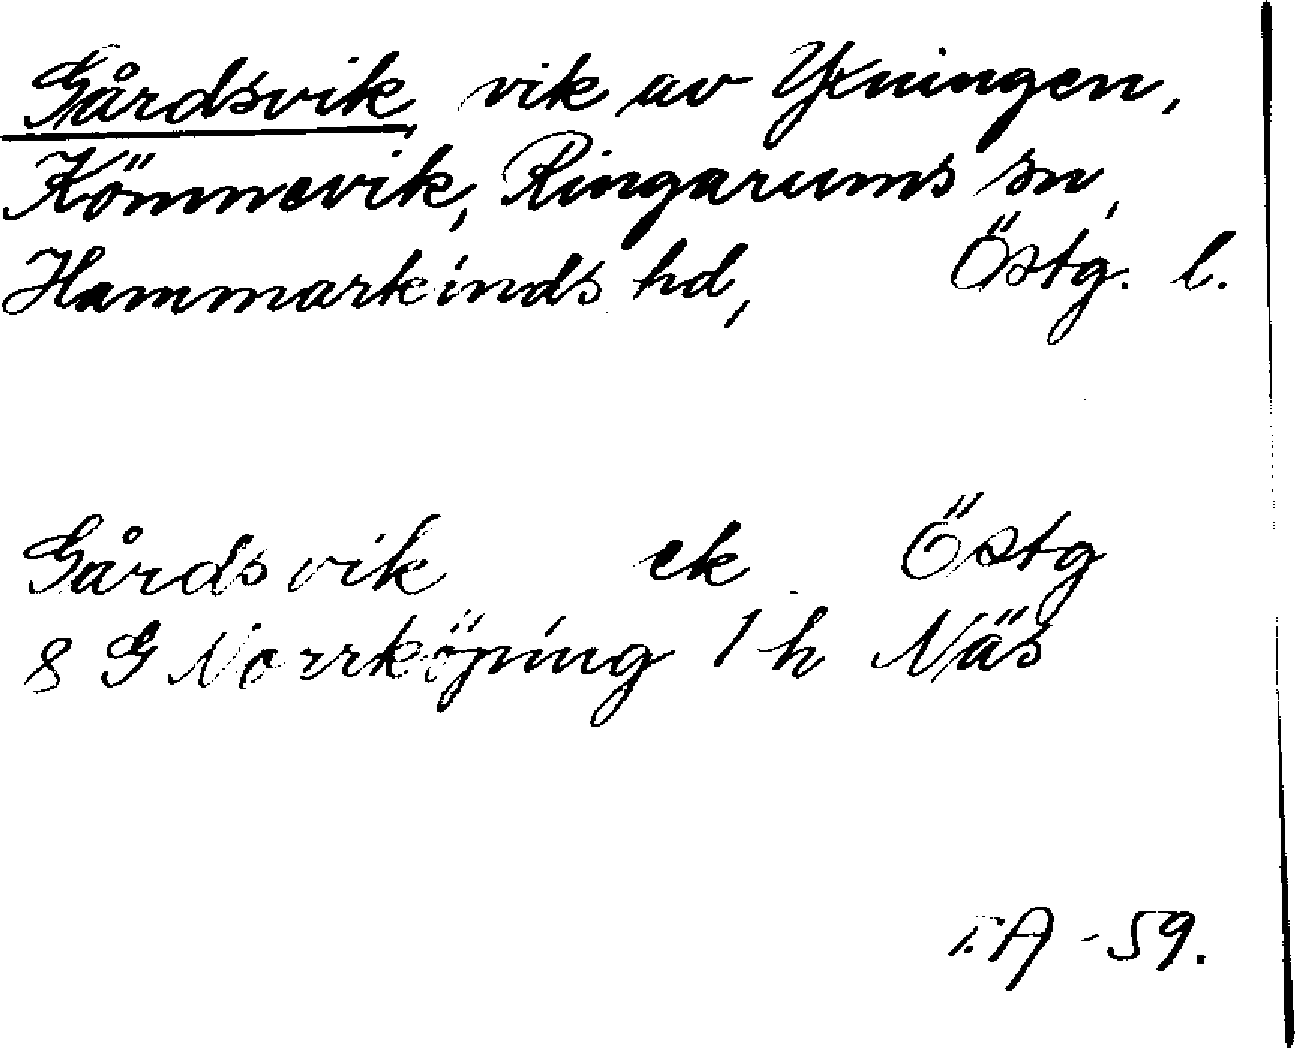 Gårdsvik, vik av Yxningen,
Kömnevik, Ringarums sn,
Hammarkinds hd, Östg. l.
Gårdsvik ek Östg
8 G Norrköping 1 h Näs
F.A -59.